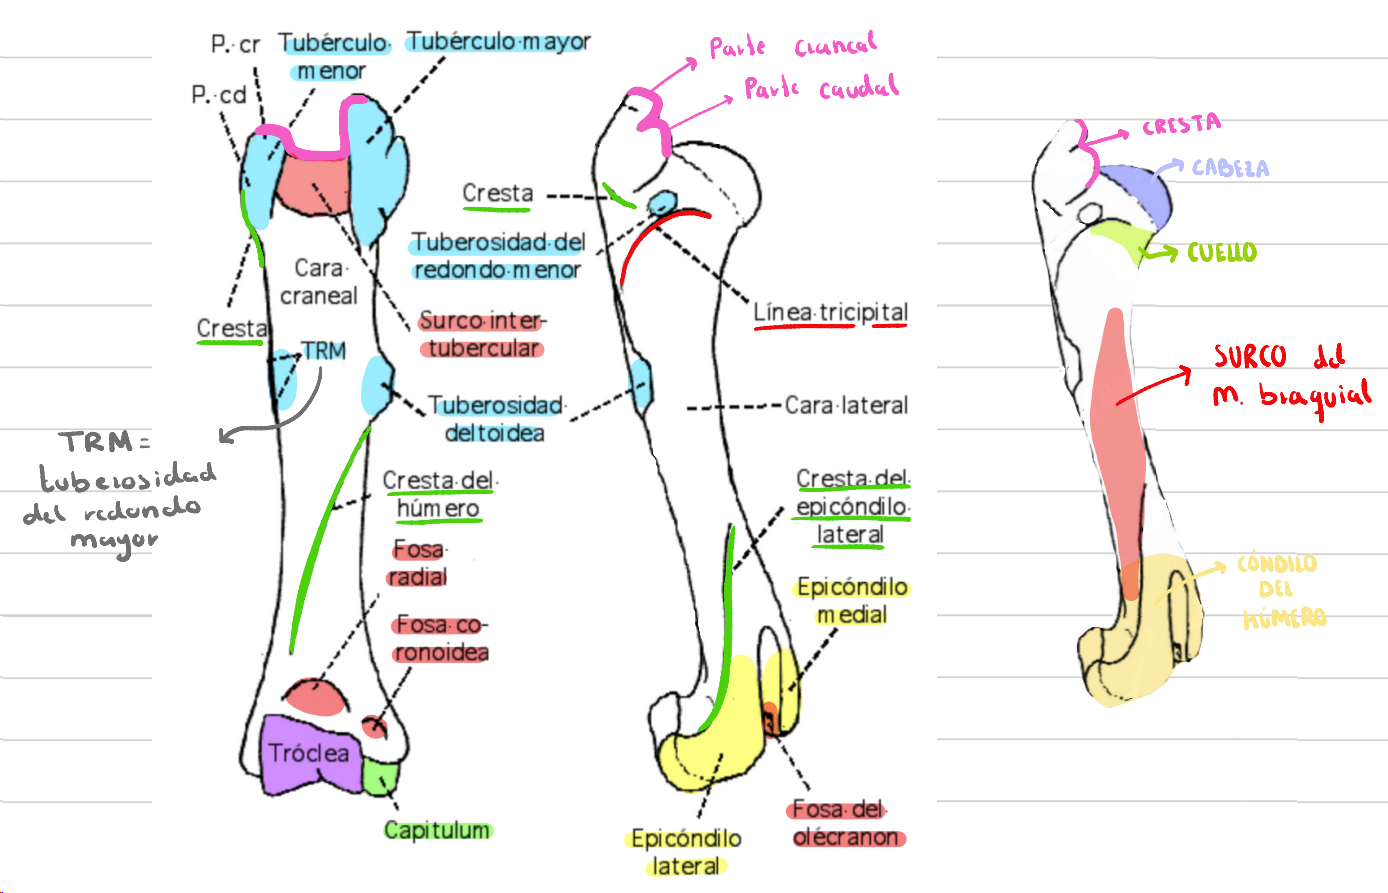 P. cr
Tubérculo
menor
Tubérculo mayor
P. cd
Cara
craneal
Cresta
TRM
Surco inter-
tubercular
Tuberosidad
deltoidea
Cresta del
húmero
Fosa
radial
Fosa co-
ronoidea
Tróclea
Capitulum
TRM =
tuberosidad
del redondo
mayor
Parte craneal
Parte caudal
Cresta
Tuberosidad del
redondo menor
Línea tricipital
Cara lateral
Cresta del
epicóndilo
lateral
Epicóndilo
medial
Fosa del
olécranon
Epicóndilo
lateral
CRESTA
CABEZA
CUELLO
SURCO del
m. braquial
CÓNDILO
DEL
HÚMERO